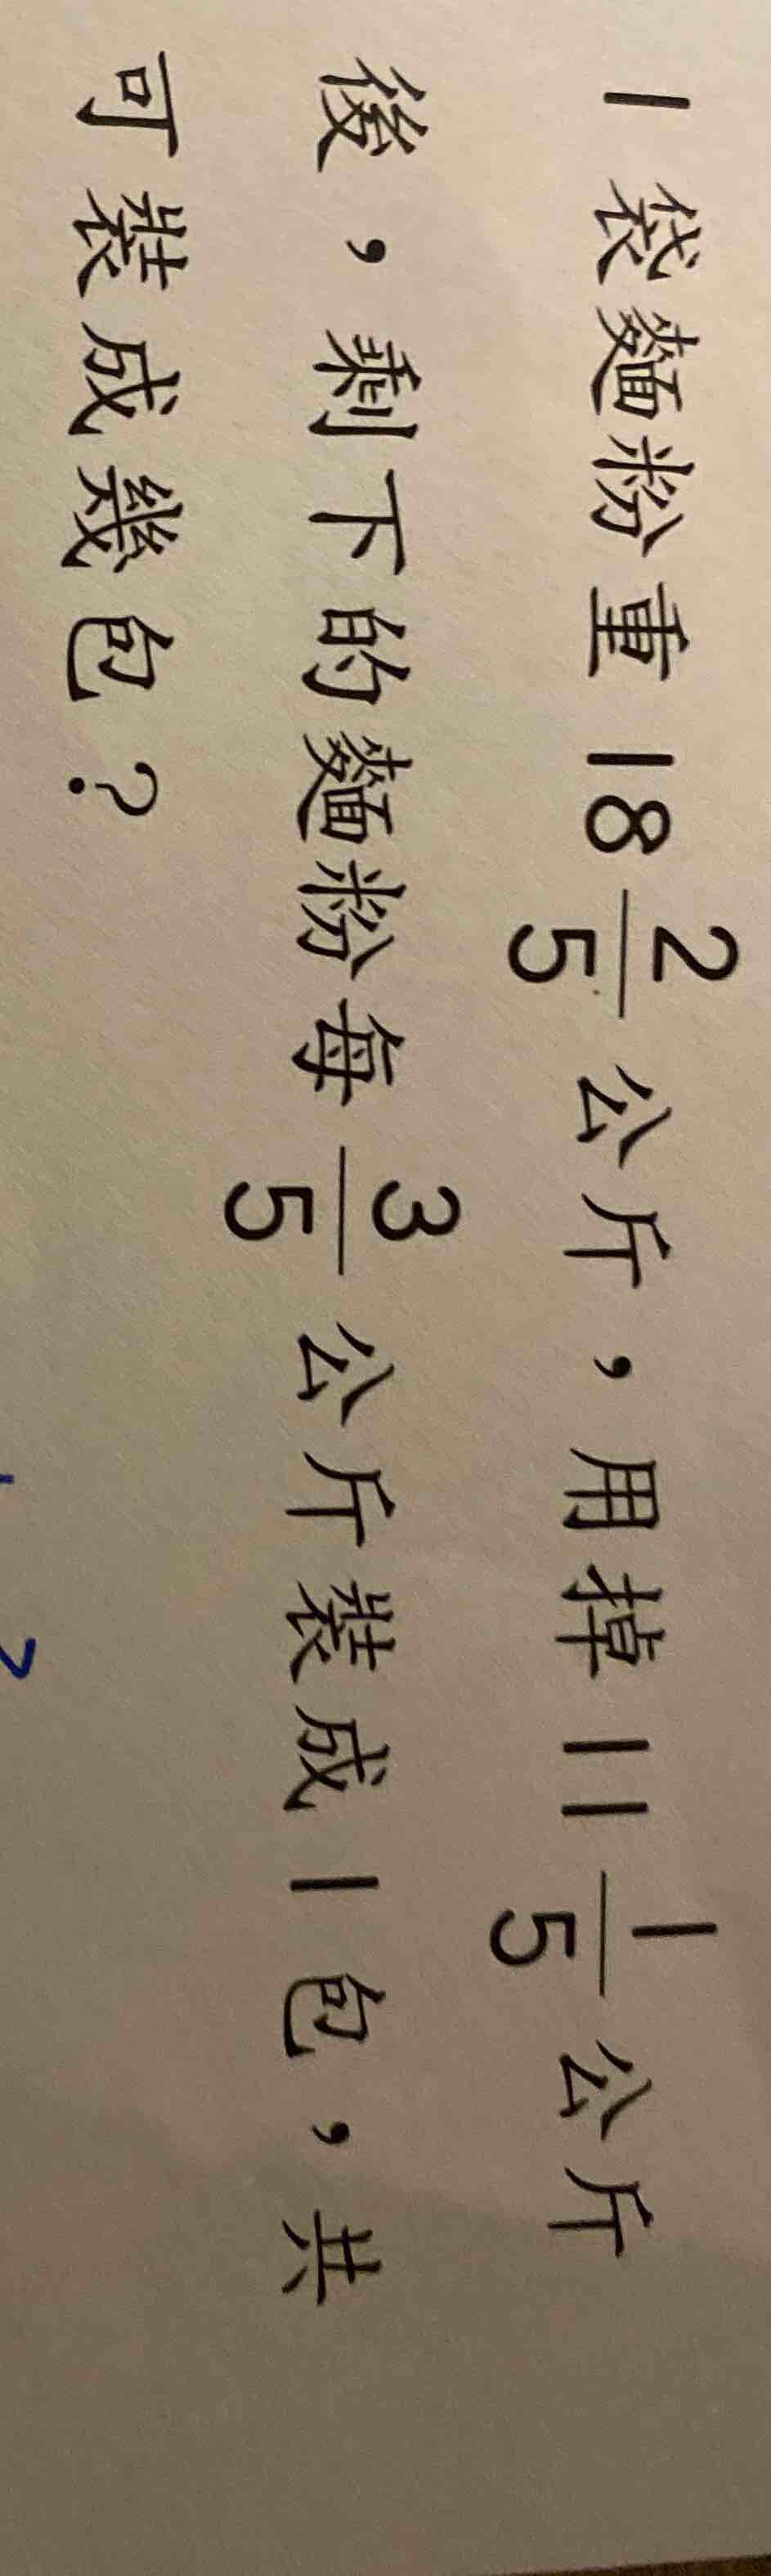 1袋麵粉重18 2/5 公斤，用掉11 1/5 公斤
後，剩下的麵粉每 3/5 公斤裝成1包，共
可裝成幾包？